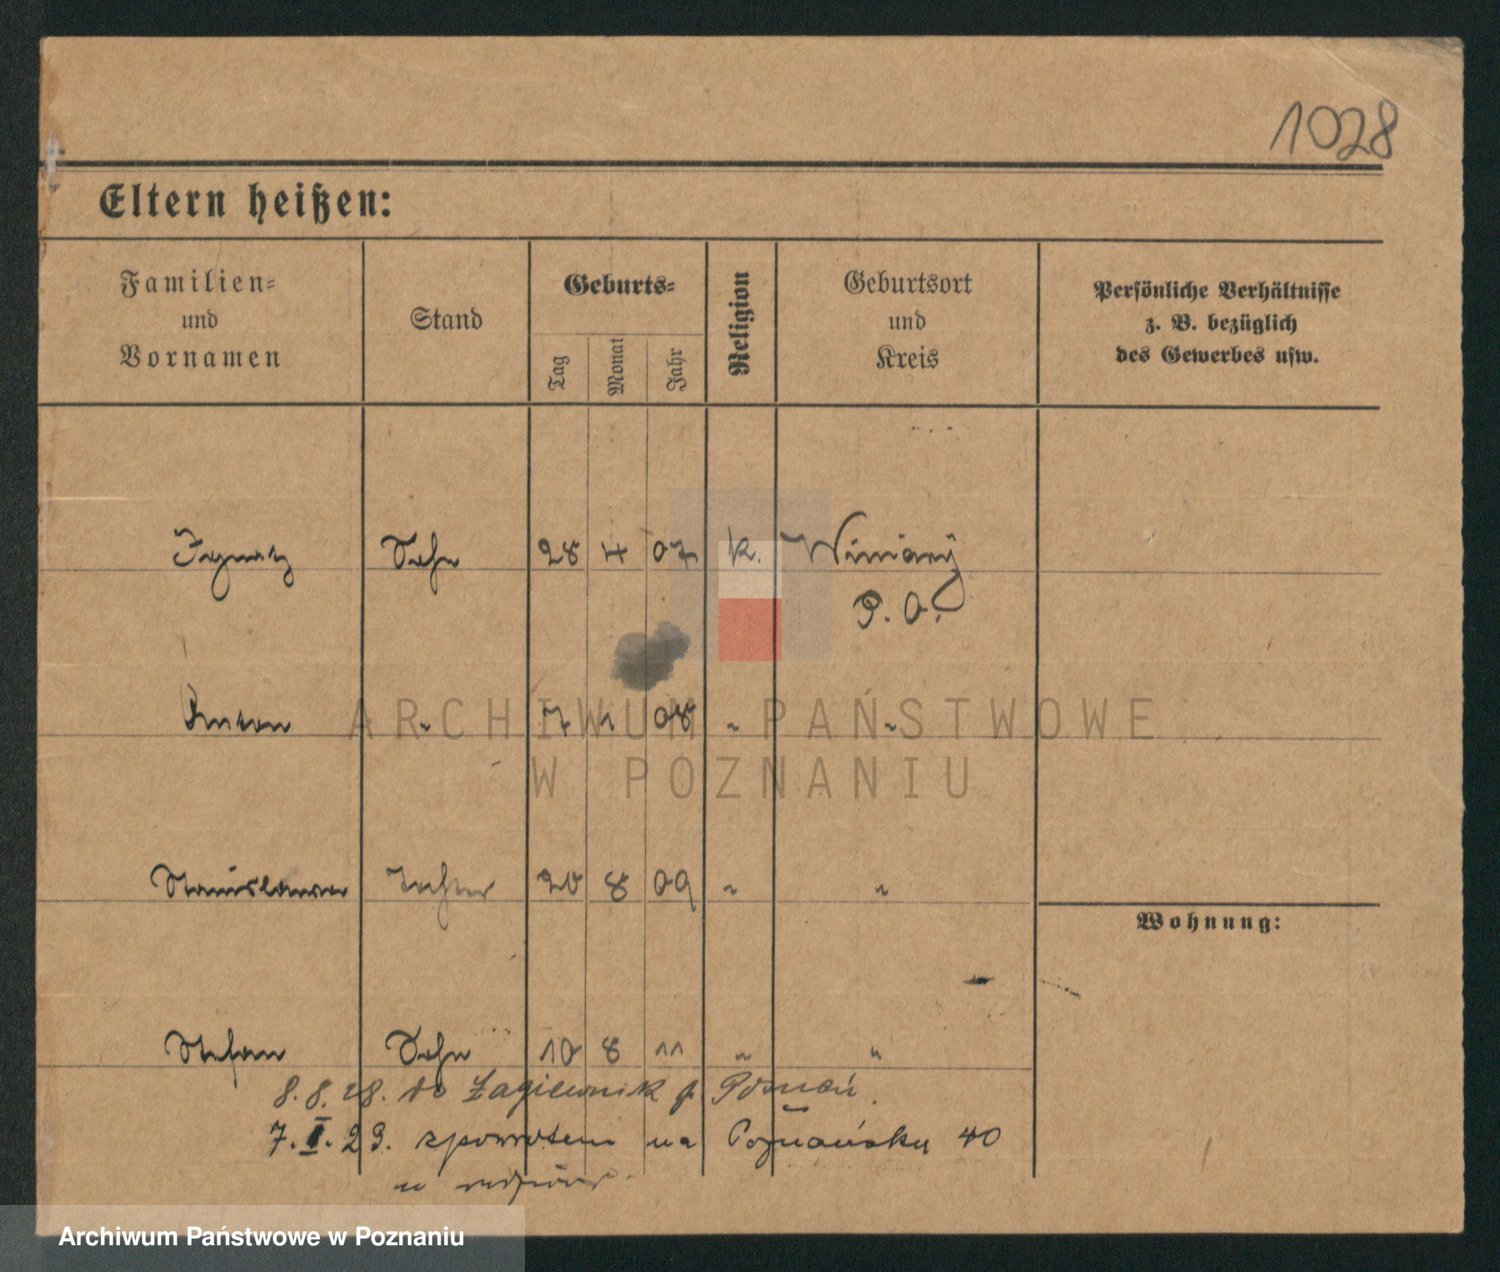 1028
Eltern heißen:
Familien-
und
Vornamen
Stand
Geburts-
Tag
Monat
Jahr
Religion
Geburtsort
und
Kreis
Persönliche Verhältnisse
z. B. bezüglich
des Gewerbes usw.
Ignatz Sohn 28 4 07 k. Winiary
P. O.
Anton " 7 1 08 " "
Stanislawa Tochter 20 8 09 " "
Wohnung:
Stefan Sohn 10 8 11 " "
8.8.28. do Łagiewnik p. Poznań.
7.I.29. zpowrotem na Poznańsku 40
ARCHIWUM PAŃSTWOWE
W POZNANIU
Archiwum Państwowe w Poznaniu